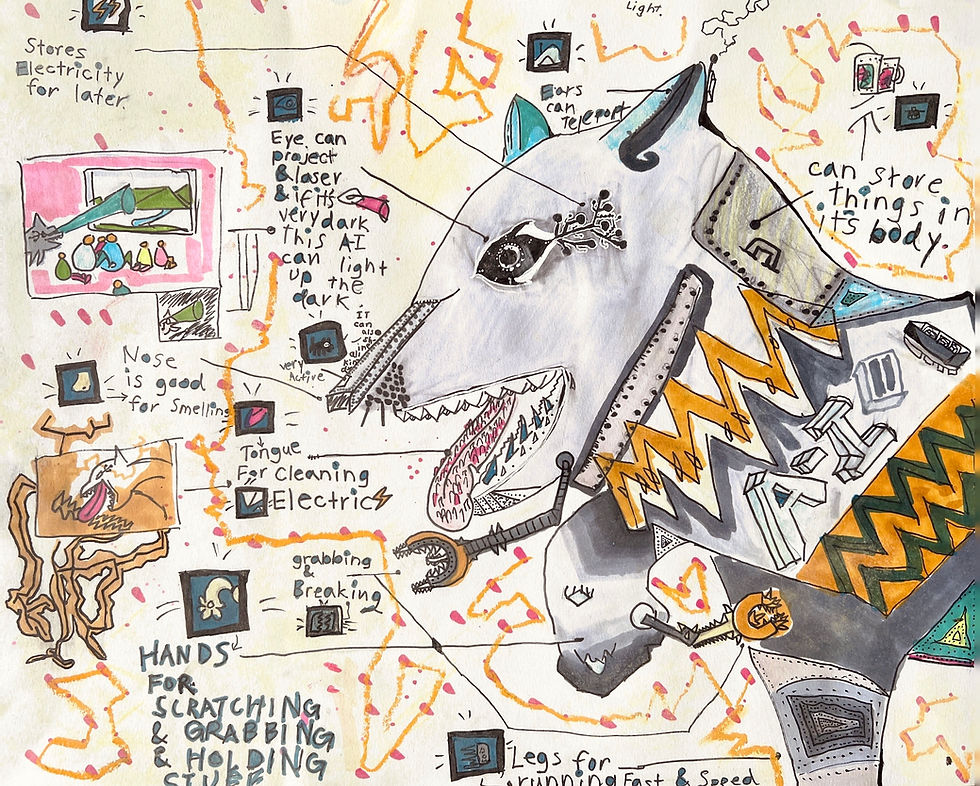 Light.
Stores
Electricity
for later.
Ears
can
Teleport
Eye can
project
& laser
& if it's
very dark
this AI
can light
up the
dark
can store
things in
it's body.
IT
can
also
very
Active
Nose
is good
for smelling
Tongue
For Cleaning
Electric
grabbing
&
Breaking
HANDS
FOR
SCRATCHING
& GRABBING
& HOLDING
STUFF
Legs for
running Fast & Speed